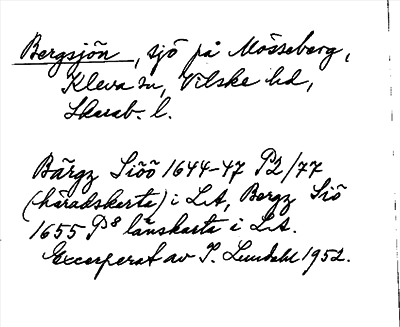 Bergsjön, sjö på Mösseberg,
Kleva sn, Vilske hd,
Skarab. l.
Bärgz Siöö 1644-47 P2/77
(häradskarta) i LA, Bergz Siö
1655 P8 länskarta i LA.
Excerperat av I. Lundahl 1952.